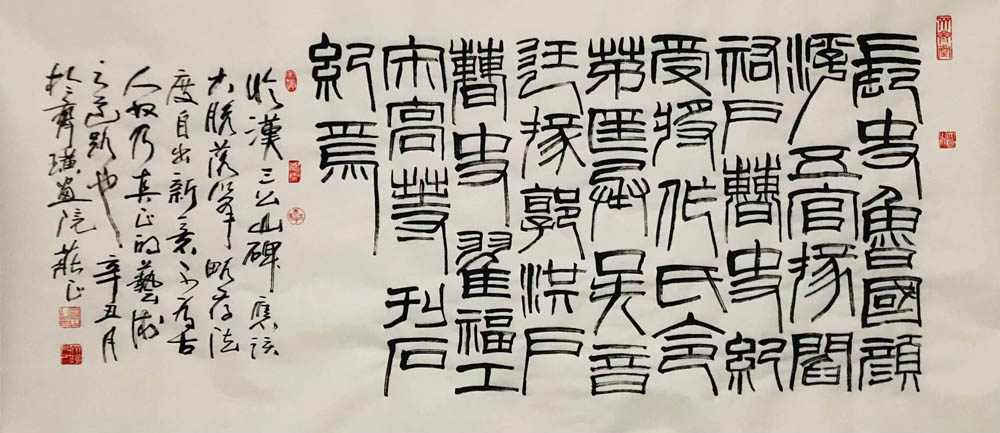 長史魯國顏
浮五官掾閻
祐戶曹史紀
受將作氏令
茅匡丞吳音
廷掾郭洪戶
曹史翟福工
宋高等刊石
紀焉
臨漢三公山碑應該
大膽落筆既存法
度自出新意不為古
人奴乃真正的藝術
之道路也辛丑月
於齊璜畫院莊正